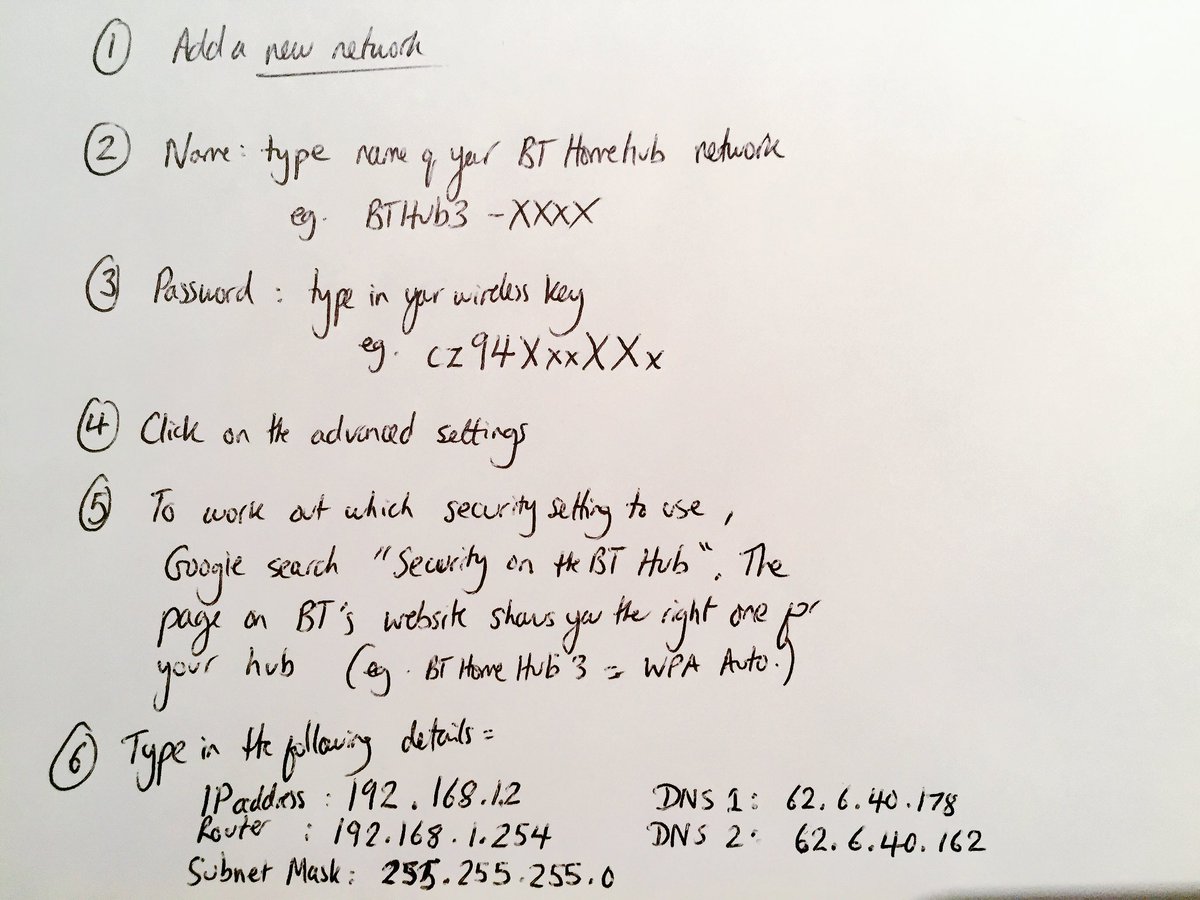 ① Add a new network
② Name: type name of your BT Homehub network
eg. BTHub3 -XXXX
③ Password: type in your wireless key
eg. cz94XxxXXx
④ Click on the advanced settings
⑤ To work out which security setting to use,
Google search "Security on the BT Hub". The
page on BT's website shows you the right one for
your hub (eg. BT Home Hub 3 = WPA Auto.)
⑥ Type in the following details=
IP address: 192.168.1.2 DNS 1: 62.6.40.178
Router: 192.168.1.254 DNS 2: 62.6.40.162
Subnet Mask: 255.255.255.0